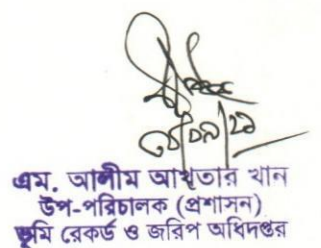 এম. আলীম আখতার খান
উপ-পরিচালক (প্রশাসন)
ভূমি রেকর্ড ও জরিপ অধিদপ্তর